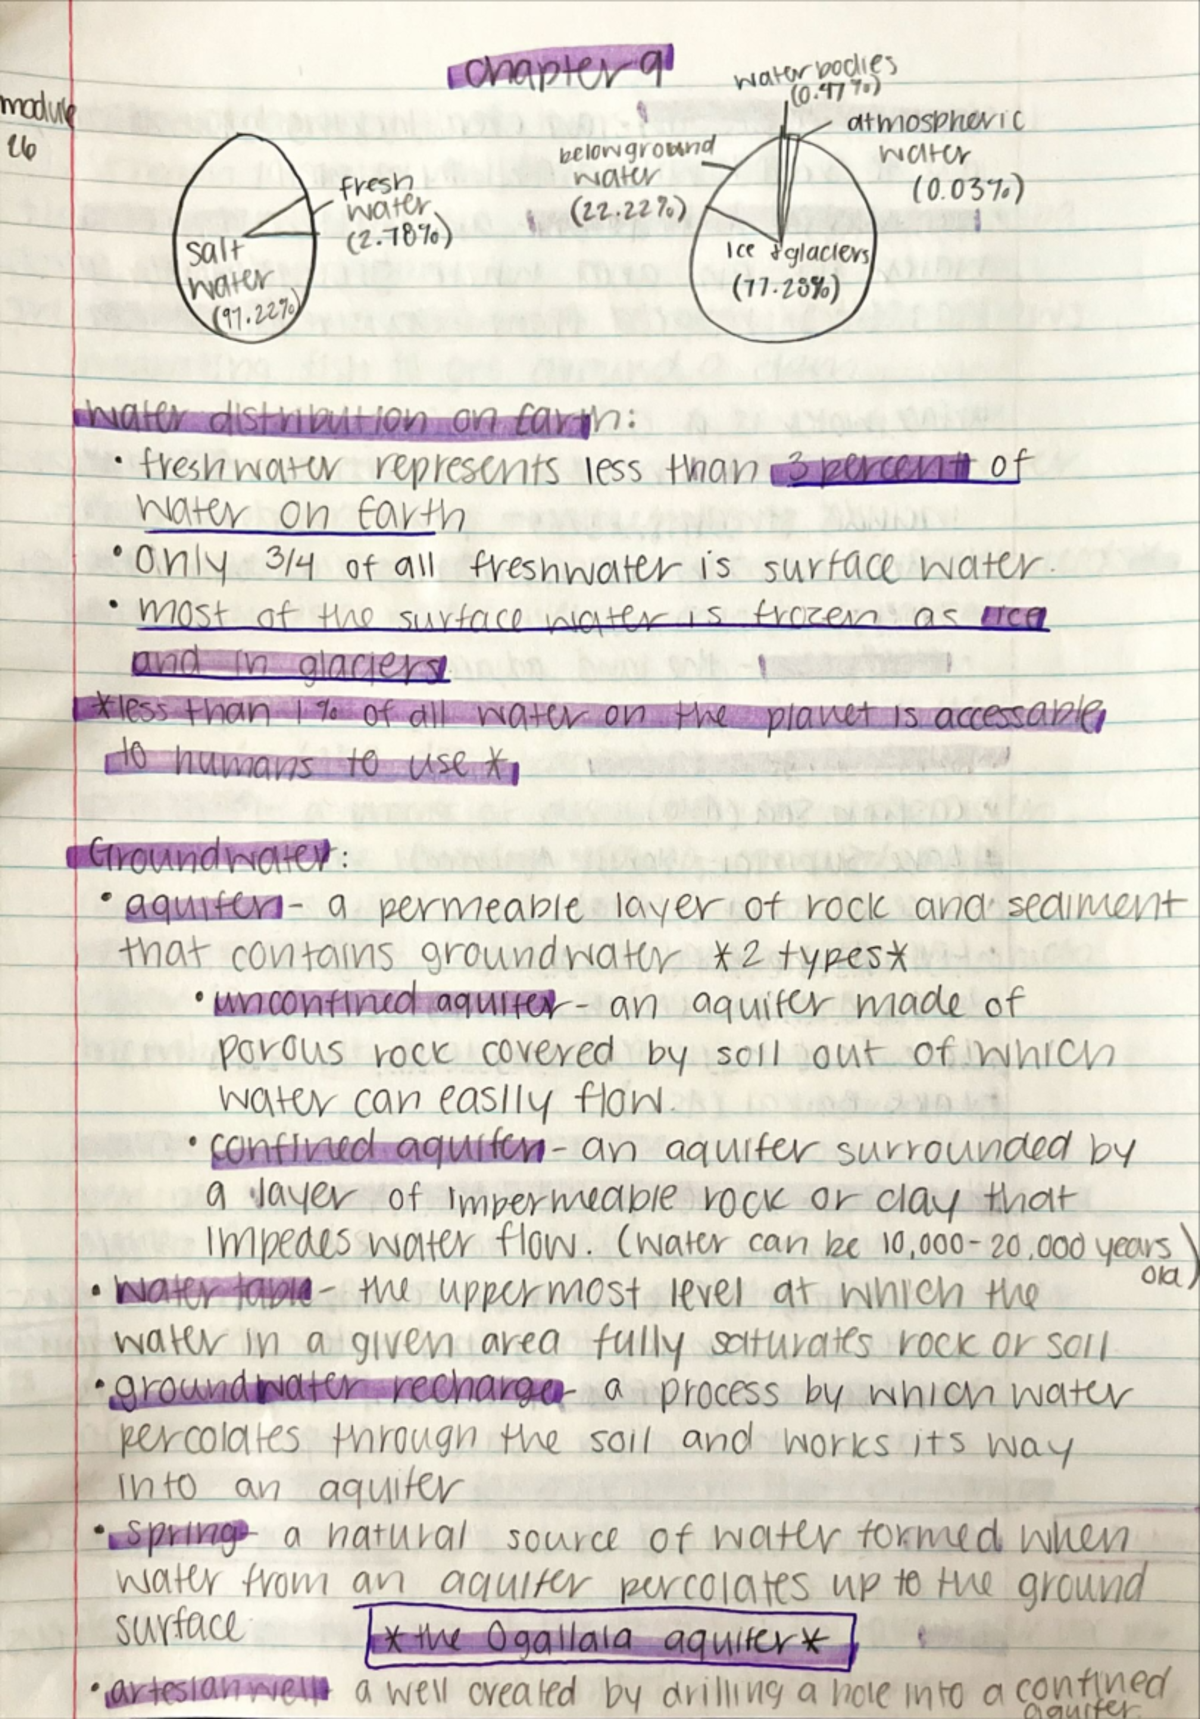 chapter 9
module
26
water bodies
(0.47%)
atmospheric
water
(0.03%)
belowground
water
(22.22%)
fresh
water
(2.78%)
salt
water
(97.22%)
Ice & glaciers
(77.28%)
water distribution on Earth:
• freshwater represents less than 3 percent of
water on Earth
• only 3/4 of all freshwater is surface water.
• most of the surface water is frozen as ice
and in glaciers
*less than 1% of all water on the planet is accessable
to humans to use*
Groundwater:
• aquifer - a permeable layer of rock and sediment
that contains groundwater *2 types*
• unconfined aquifer - an aquifer made of
porous rock covered by soil out of which
water can easily flow.
• confined aquifer - an aquifer surrounded by
a layer of impermeable rock or clay that
impedes water flow. (water can be 10,000-20,000 years
old)
• water table - the uppermost level at which the
water in a given area fully saturates rock or soil
• groundwater recharge - a process by which water
percolates through the soil and works its way
into an aquifer
• spring - a natural source of water formed when
water from an aquifer percolates up to the ground
surface
*the Ogallala aquifer*
• artesian well a well created by drilling a hole into a confined
aquifer